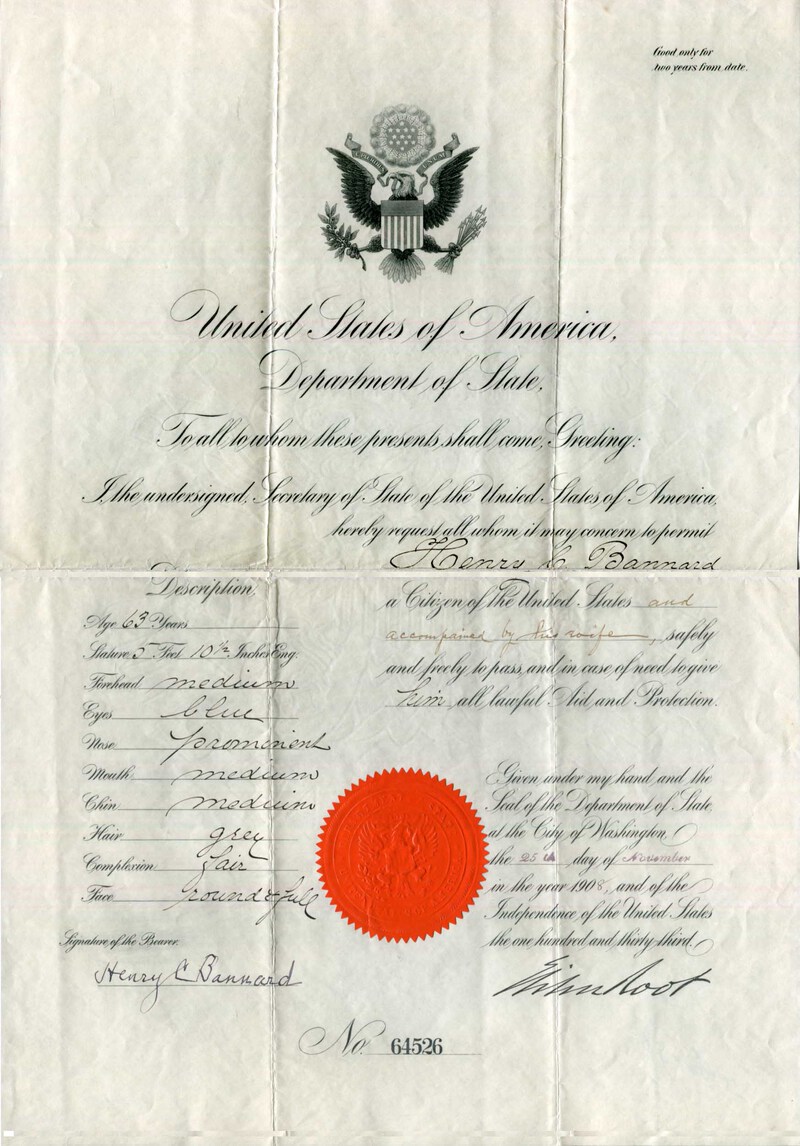 Good only for
two years from date.
E PLURIBUS UNUM
United States of America,
Department of State,
To all to whom these presents shall come, Greeting:
I, the undersigned, Secretary of State of the United States of America,
hereby request all whom it may concern to permit
Henry C. Bannard
Description,
Age 63 Years
Stature 5 Feet 10½ Inches Eng.
Forehead medium
Eyes blue
Nose prominent
Mouth medium
Chin medium
Hair grey
Complexion fair
Face round & full
Signature of the Bearer.
Henry C Bannard
a Citizen of the United States and
accompanied by his wife, safely
and freely to pass, and in case of need to give
him all lawful Aid and Protection.
Given under my hand and the
Seal of the Department of State,
at the City of Washington,
the 25th day of November
in the year 1908, and of the
Independence of the United States
the one hundred and thirty third.
Elihu Root
No. 64526